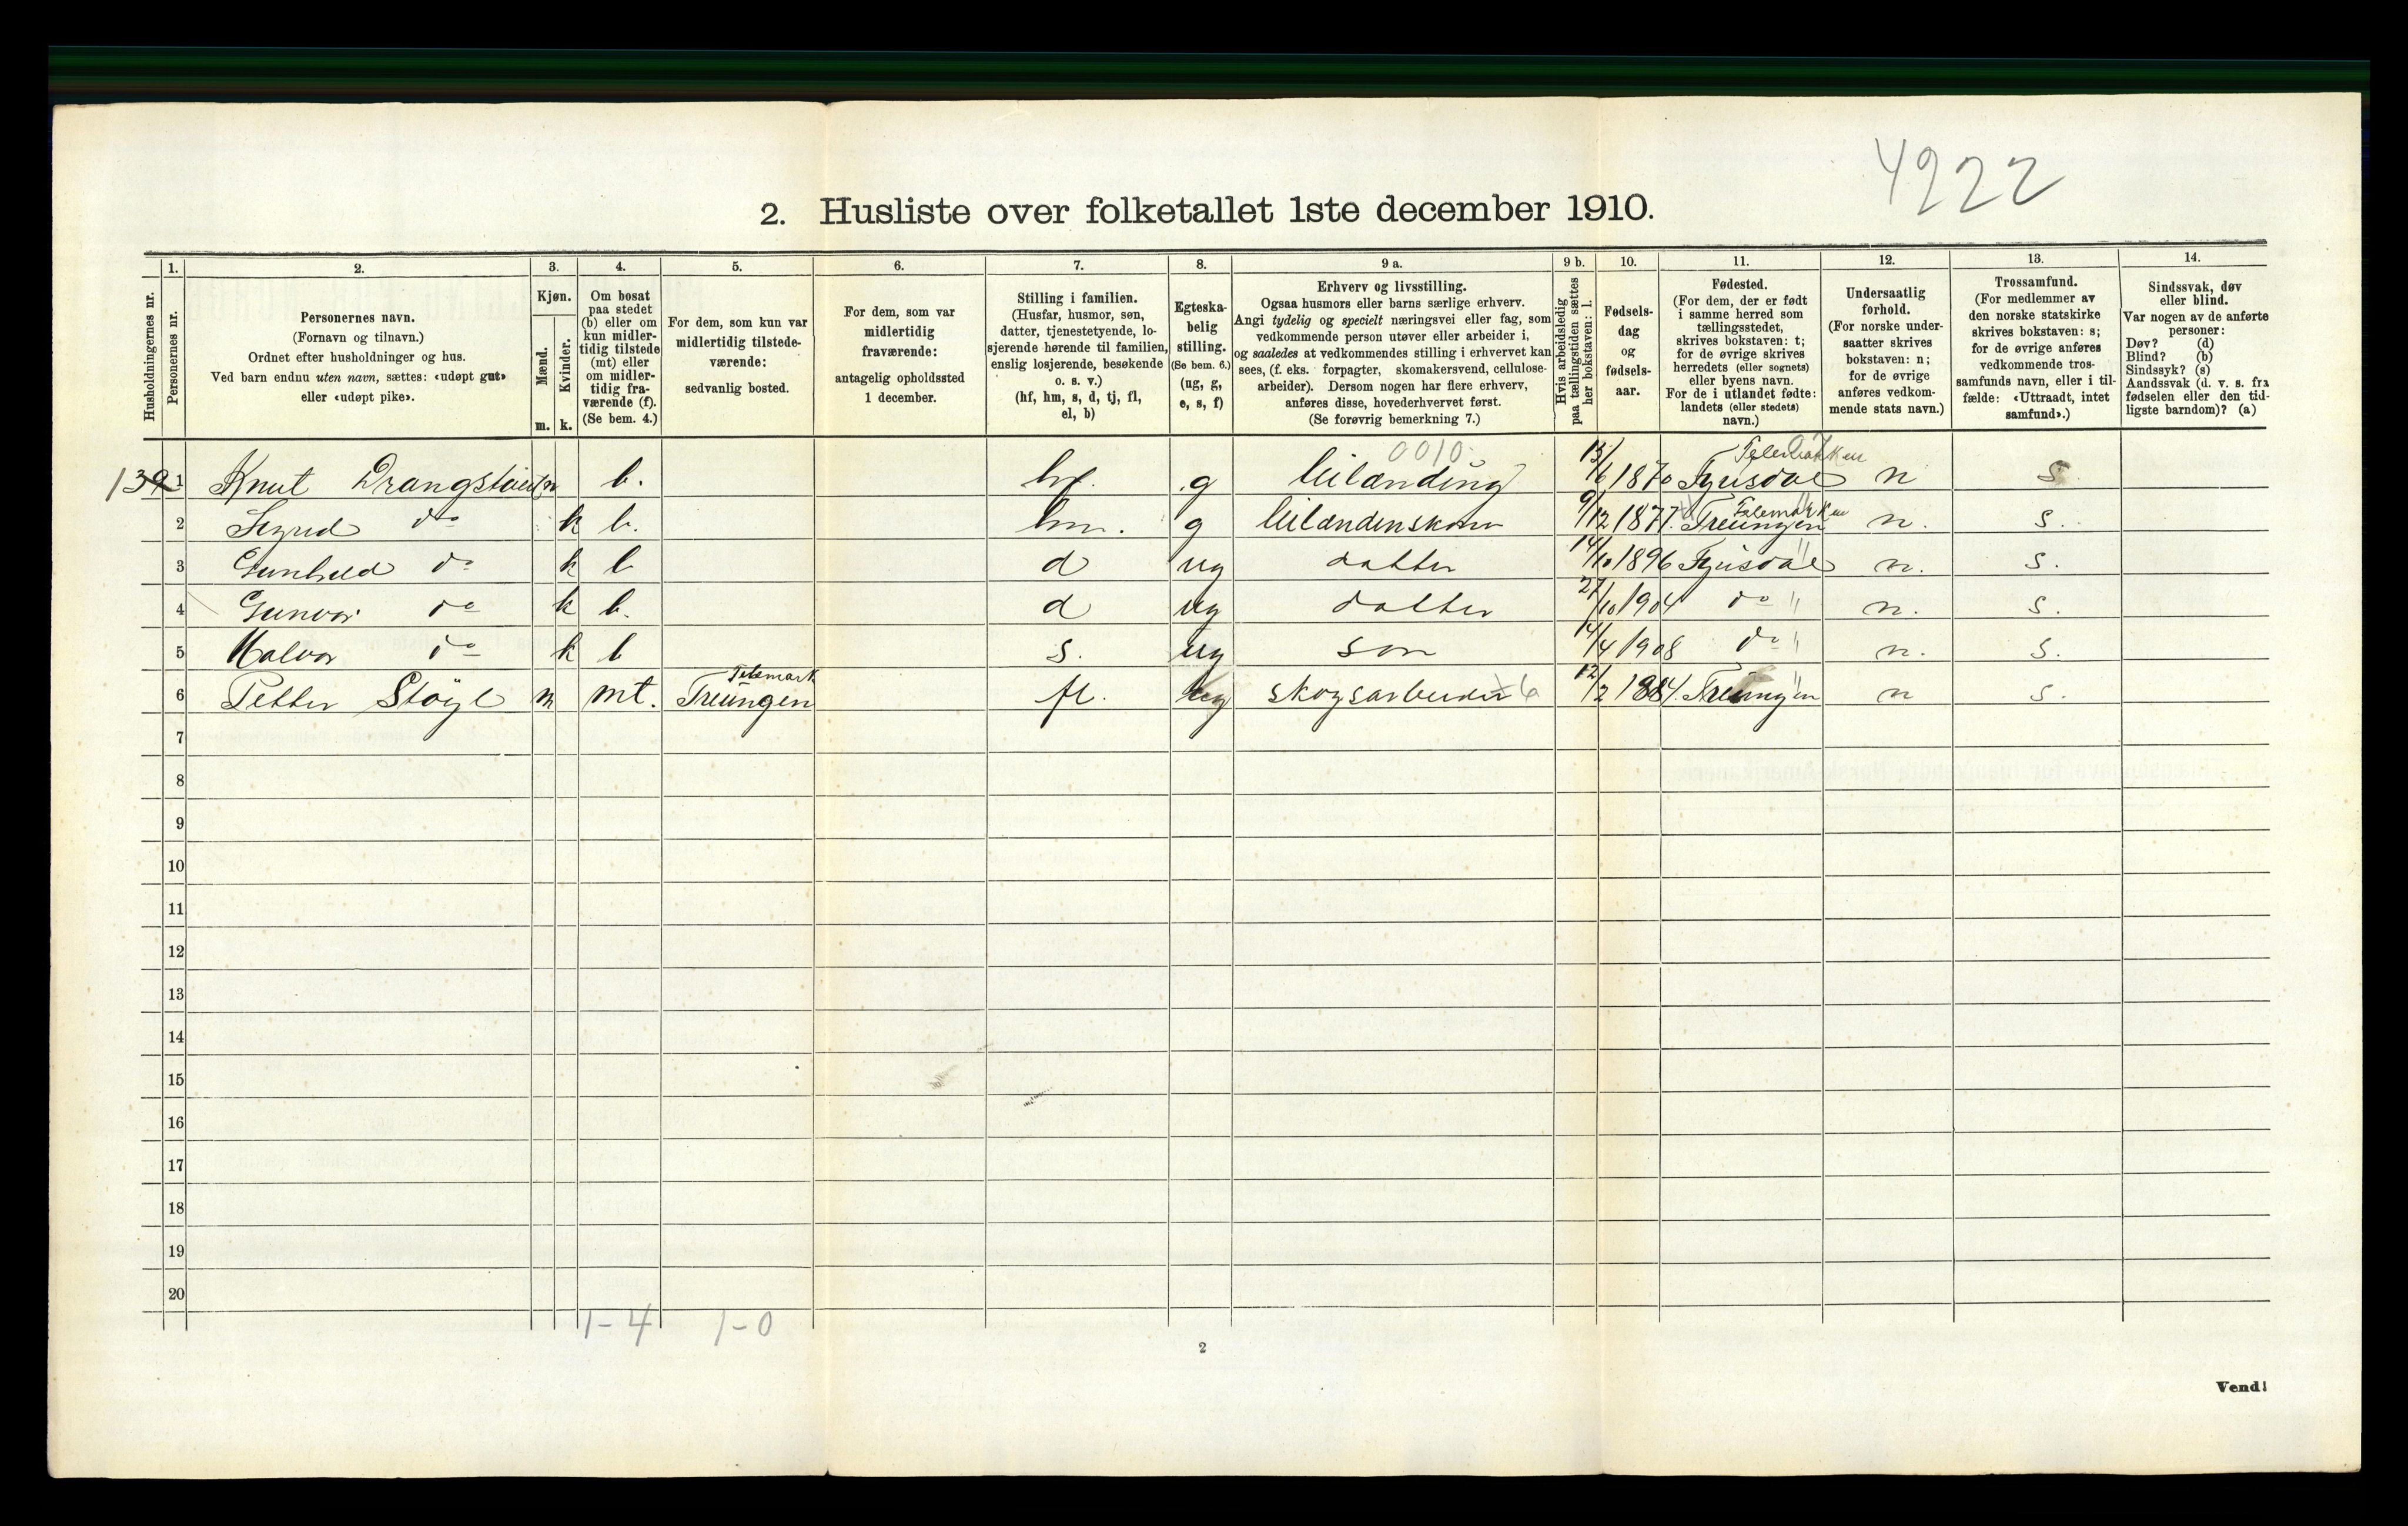 4222
2. Husliste over folketallet 1ste december 1910.
Husholdningernes nr.
1. Personernes nr.
2. Personernes navn. (Fornavn og tilnavn.) Ordnet efter husholdninger og hus. Ved barn endnu uten navn, sættes: «udøpt gut» eller «udøpt pike».
3. Kjøn. Mænd. m. Kvinder. k.
4. Om bosat paa stedet (b) eller om kun midlertidig tilstede (mt) eller om midlertidig fraværende (f). (Se bem. 4.)
5. For dem, som kun var midlertidig tilstedeværende: sedvanlig bosted.
6. For dem, som var midlertidig fraværende: antagelig opholdssted 1 december.
7. Stilling i familien. (Husfar, husmor, søn, datter, tjenestetyende, losjerende hørende til familien, enslig losjerende, besøkende o. s. v.) (hf, hm, s, d, tj, fl, el, b)
8. Egteskabelig stilling. (Se bem. 6.) (ug, g, e, s, f)
9 a. Erhverv og livsstilling. Ogsaa husmors eller barns særlige erhverv. Angi tydelig og specielt næringsvei eller fag, som vedkommende person utøver eller arbeider i, og saaledes at vedkommendes stilling i erhvervet kan sees, (f. eks. forpagter, skomakersvend, cellulosearbeider). Dersom nogen har flere erhverv, anføres disse, hovederhvervet først. (Se forøvrig bemerkning 7.)
9 b. Hvis arbeidsledig paa tællingstiden sættes her bokstaven: l.
10. Fødselsdag og fødselsaar.
11. Fødested. (For dem, der er født i samme herred som tællingsstedet, skrives bokstaven: t; for de øvrige skrives herredets (eller sognets) eller byens navn. For de i utlandet fødte: landets (eller stedets) navn.)
12. Undersaatlig forhold. (For norske undersaatter skrives bokstaven: n; for de øvrige anføres vedkommende stats navn.)
13. Trossamfund. (For medlemmer av den norske statskirke skrives bokstaven: s; for de øvrige anføres vedkommende trossamfunds navn, eller i tilfælde: «Uttraadt, intet samfund».)
14. Sindssvak, døv eller blind. Var nogen av de anførte personer: Døv? (d) Blind? (b) Sindssyk? (s) Aandssvak (d. v. s. fra fødselen eller den tidligste barndom)? (a)
0010 Telemarken
139 1 Knut m b. hf. g leilænding 1870 n s
Telemarken
2 do k b. hm. g 9/12 1877. Treungen n. s.
3 Gunhild do k b d ug datter 14/10 1896 n. s.
4 Gunvor do k b. d ug datter 27/10 1904 do " n. s.
5 Halvor do k b s. ug son 14/4 1908 do " n. s.
Telemark
6 Petter Støyl m mt. Treungen fl. ug skogsarbeider 12/2 1884. Treungen n s.
7
8
9
10
11
12
13
14
15
16
17
18
19
20
1-4 1-0
2
Vend!